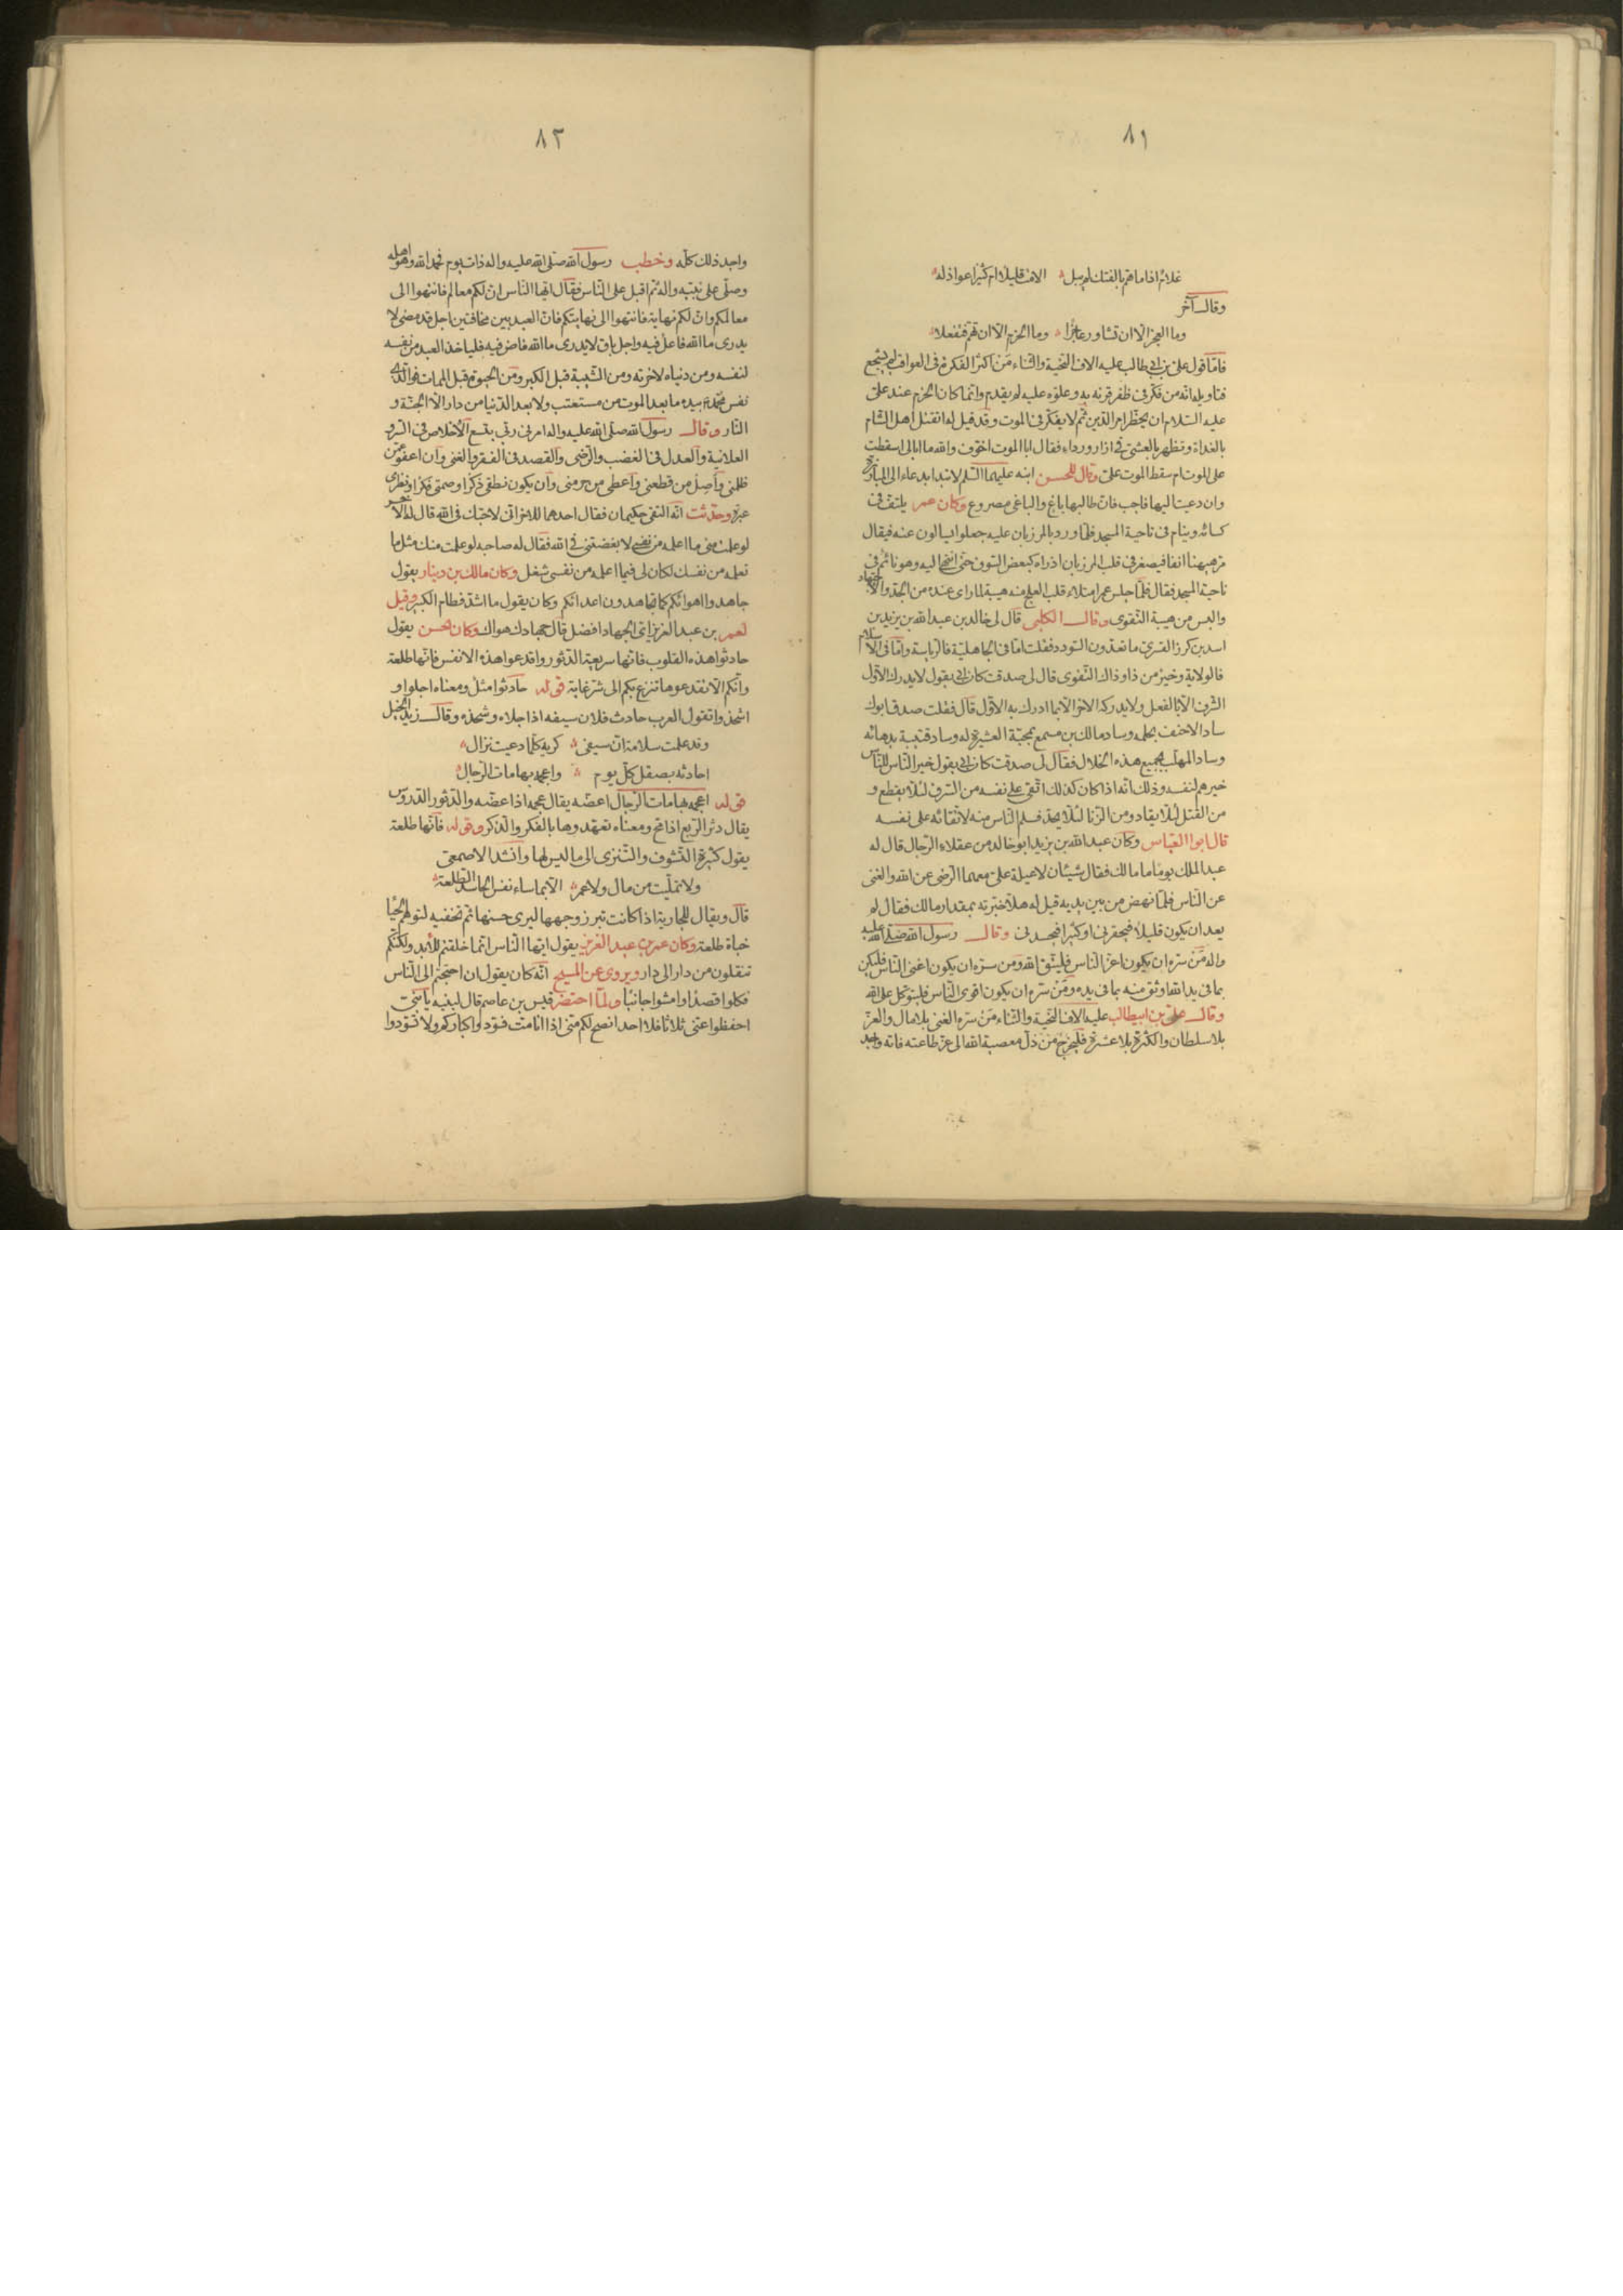 ٨١
غلام اذا ما هم بالفتك لم يبل الامت قليلا ام كثيرا عواذله
وقال آخر
وما العجز الا ان تشاور عاجزا وما الحزم الا ان تهم فتفعلا
فامّا قول علىّ بن ابى طالب عليه الاف التحية والثناء مَن اكثر الفكرة فى العواقب لم يشجع
فتاويله انّه من فكّر فى ظفر قرنه به وعلوّه عليه لم يقدم وانّما كان الحزم عند علىّ
عليه السّلام ان يحظر امر الدّين ثمّ لا يفكّر فى الموت وقد قيل له اتقتل اهل الشام
بالغداة وتظهر بالعشىّ فى ازار ورداء فقال ابالموت اخوّف والله ما ابالى اسقطت
على الموت ام سقط الموت علىّ وقال للحسن ابنه عليهما السّلم لا تبدا بدعاء الى المبارزة
وان دعيت اليها فاجب فانّ طالبها باغ والباغى مصروع وكان عمر يلتفّ فى
كسائه وينام فى ناحية المسجد فلمّا ورد بالمرزبان عليه جعلوا يسالون عنه فيقال
مرّ هيهنا انفا فيصغر فى قلب المرزبان اذ راه كبعض السّوق حتّى انتهى اليه وهو نائم فى
ناحية المسجد فقال فلمّا جلس عمر امتلاء قلب العلج منه هيبة لما راى عنده من الجدّ والاجتهاد
والبس من هيبة التّقوى وقال الكلبى قال لى خالد بن عبد الله بن يزيد بن
اسد بن كرز القسرى ما تعدّون السّودد فقلت امّا فى الجاهليّة فالرّياسة وامّا فى الاسلام
فالولاية وخير من ذا وذاك التّقوى قال لى صدقت كان ابى يقول لا يدرك الاوّل
الشّرف الّا بالفعل ولا يدركه الاخر الّا بما ادرك به الاوّل قال فقلت صدق ابوك
ساد الاحنف بحلمه وساد مالك بن مسمع بمحبّة العشيرة له وساد قتيبة بدهائه
وساد المهلّب بجميع هذه الخلال فقال لى صدقت كان ابى يقول خير النّاس للنّاس
خيرهم لنفسه وذلك انّه اذا كان كذلك اتّقى على نفسه من السّرق لئلّا يقطع و
من القتل لئلّا يقاد ومن الزّنا لئلّا يحدّ فسلم النّاس منه لاتّقائه على نفسه
قال ابو العبّاس وكان عبد الله بن يزيد ابو خالد من عقلاء الرّجال قال له
عبد الملك يوما ما مالك فقال شيئان لا عيلة علىّ معهما الرّضى عن الله والغنى
عن النّاس فلمّا نهض من بين يديه قيل له هلّا خبّرته بمقدار مالك فقال لم
يعد ان يكون قليلا فيحقرنى او كثيرا فيحسدنى وقال رسول الله صلّى الله عليه
واله مَن سرّه ان يكون اعزّ النّاس فليتّق الله ومن سرّه ان يكون اغنى النّاس فليكن
بما فى يد الله اوثق منه بما فى يده ومَن سرّه ان يكون اقوى النّاس فليتوكّل على الله
وقال على بن ابيطالب عليه الاف التّحية والثّناء مَن سرّه الغنى بلا مال والعزّ
بلا سلطان والكثرة بلا عشيرة فليخرج من ذلّ معصية الله الى عزّ طاعته فانّه واجد
٨٢
واجد ذلك كلّه وخطب رسول الله صلّى الله عليه واله ذات يوم فحمد الله بما هو اهله
وصلّى على نبيّه واله ثم اقبل على النّاس فقال ايّها النّاس انّ لكم معالم فانتهوا الى
معالمكم وانّ لكم نهاية فانتهوا الى نهايتكم فانّ العبد بين مخافتين اجل قد مضى لا
يدرى ما الله فاعل فيه واجل باق لا يدرى ما الله قاض فيه فلياخذ العبد من نفسه
لنفسه ومن دنياه لاخرته ومن الشّيبة قبل الكبر ومن الحيوة قبل الممات فوالّذى
نفس محمّد بيده ما بعد الموت من مستعتب ولا بعد الدّنيا من دار الّا الجنّة و
النّار وقال رسول الله صلّى الله عليه واله امرنى ربّى بتسع الاخلاص فى السّر و
العلانية والعدل فى الغضب والرّضى والقصد فى الفقر والغنى وان اعفو عمّن
ظلمنى واصل من قطعنى واعطى من حرمنى وان يكون نطقى ذكرا وصمتى فكرا ونظرى
عبرة وحدّثت انّه التقى حكيمان فقال احدهما للاخر انّى لاحبّك فى الله قال له الاخر
لو علمت منى ما اعلمه من نفسى لابغضتنى فى الله فقال له صاحبه لو علمت منك مثل ما
تعلمه من نفسك لكان لى فيما اعلمه من نفسى شغل وكان مالك بن دينار يقول
جاهدوا اهوائكم كما تجاهدون اعدائكم وكان يقول ما اشدّ فطام الكبير وقيل
لعمر بن عبد العزيز اىّ الجهاد افضل قال جهادك هواك وكان الحسن يقول
حادثوا هذه القلوب فانّها سريعة الدّثور واقدعوا هذه الانفس فانّها طلعة
وانّكم الّا تقدعوها تنزع بكم الى شرّ غاية قوله حادثوا مثل ومعناه اجلوا و
اشحذوا تقول العرب حادث فلان سيفه اذا جلاه وشحذه وقال زيد الخيل
وقد علمت سلامة انّ سيفى كريه كلّما دعيت نزال
احادثه بصقل كلّ يوم واعجمه بهامات الرّجال
قوله اعجمه بهامات الرّجال اعضّه يقال عجمه اذا عضّه والدّثور الدّروس
يقال دثر الرّبع اذا محّ ومعناه تعهّدوها بالفكر والذّكر وقوله فانّها طلعة
يقول كثيرة التّشوف والتّنزى الى ما ليس لها وانشد الاصمعى
ولا تملّيت من مال ولا عمر الّا بما ساء نفس الحاسد الطّلعة
قال ويقال للجارية اذا كانت تبرز وجهها ليرى حسنها ثم تخفيه لتوهم الحيا
خباة طلعة وكان عمر بن عبد العزيز يقول ايّها النّاس انّما خلقتم للابد ولكنّكم
تنقلون من دار الى دار ويروى عن المسيح انّه كان يقول ان احتجتم الى النّاس
فكلوا قصدا وامشوا جانبا ولمّا احتضر قيس بن عاصم قال لبنيه يا بنىّ
احفظوا عنى ثلاثا فلا احد انصح لكم منّى اذا انا متّ فسوّدوا كباركم ولا تسوّدوا